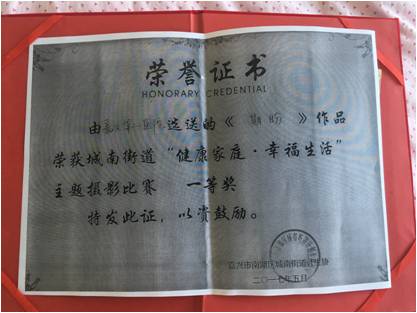 荣誉证书
HONORARY CREDENTIAL
由 第一医院选送的《 期盼 》作品
荣获城南街道“健康家庭·幸福生活”
主题摄影比赛 一等奖
特发此证，以资鼓励。
嘉兴市南湖区城南街道计生协
二〇一七年五月